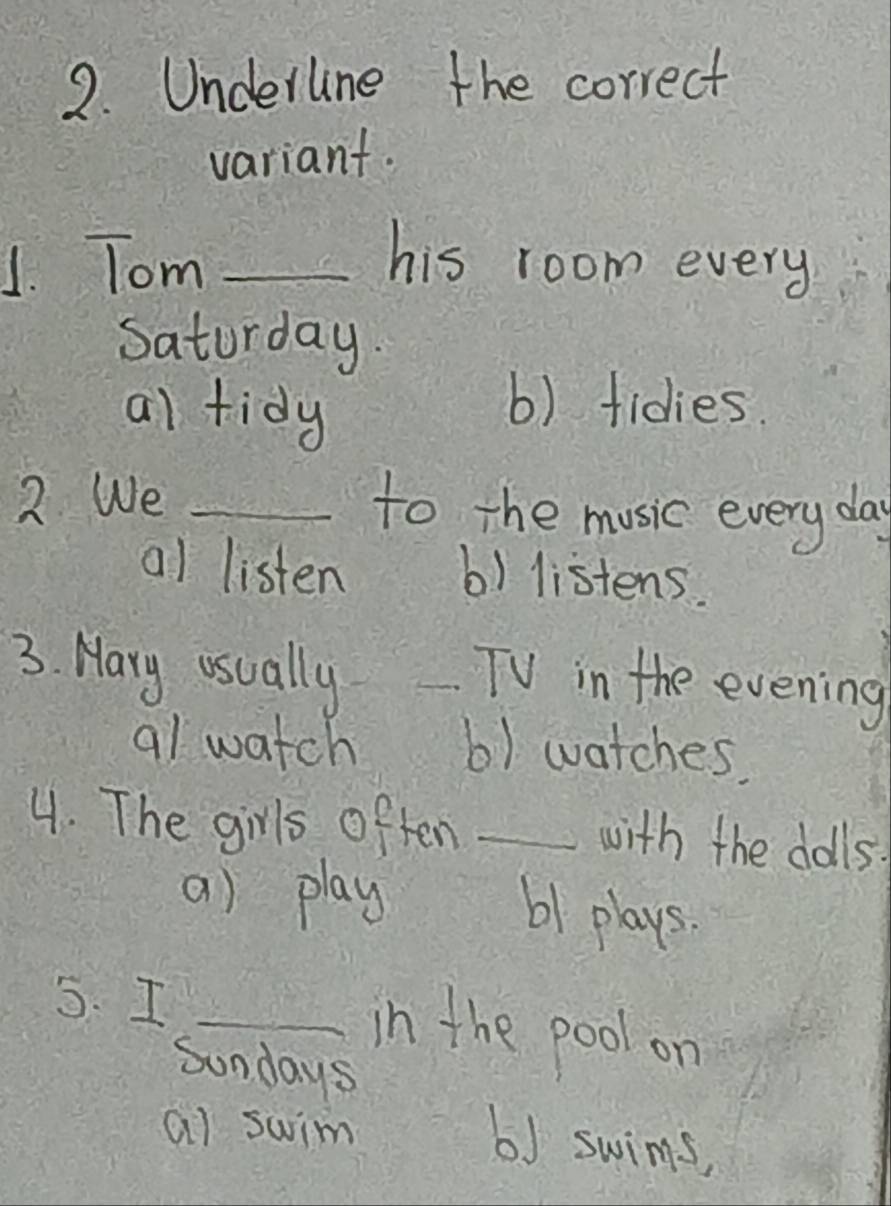 2. Underline the correct
variant.
1. Tom ____ his room every
Saturday.
a) tidy b) tidies.
2. We ____ to the music every day
a) listen b) listens.
3. Mary usually __ TV in the evening
a) watch b) watches.
4. The girls often ___ with the dolls.
a) play b) plays.
5. I ____ in the pool on
Sundays
a) swim b) swims,